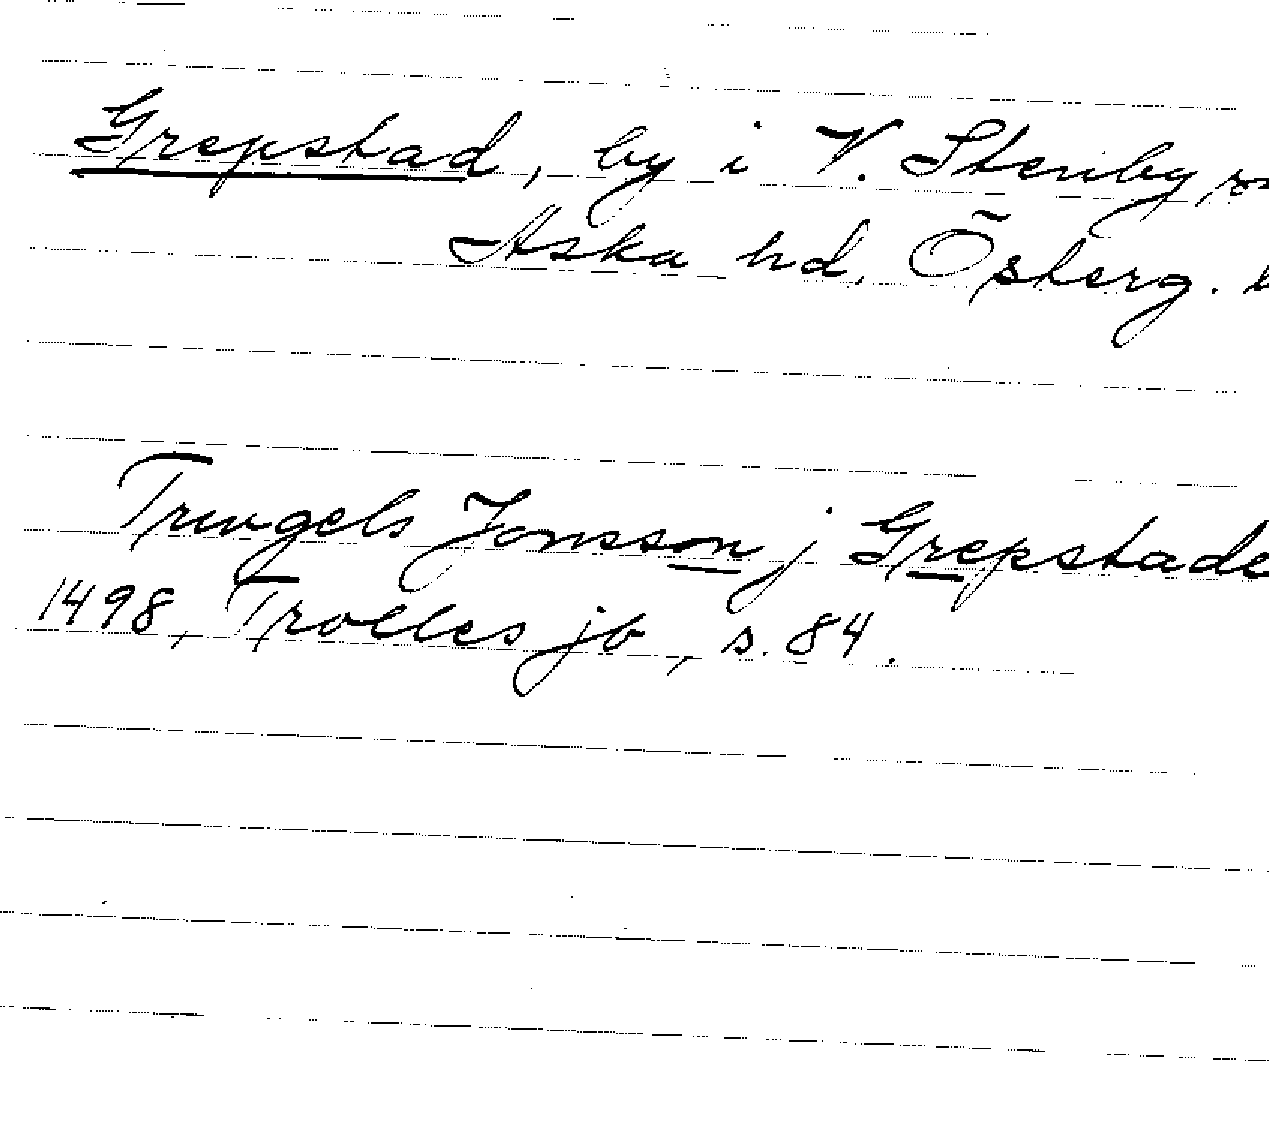 Grepstad, by i V. Stenby sn
Aska hd, Österg. l
Trengels Jonsson j Grepstade
1498, Trolles jb, s. 84.